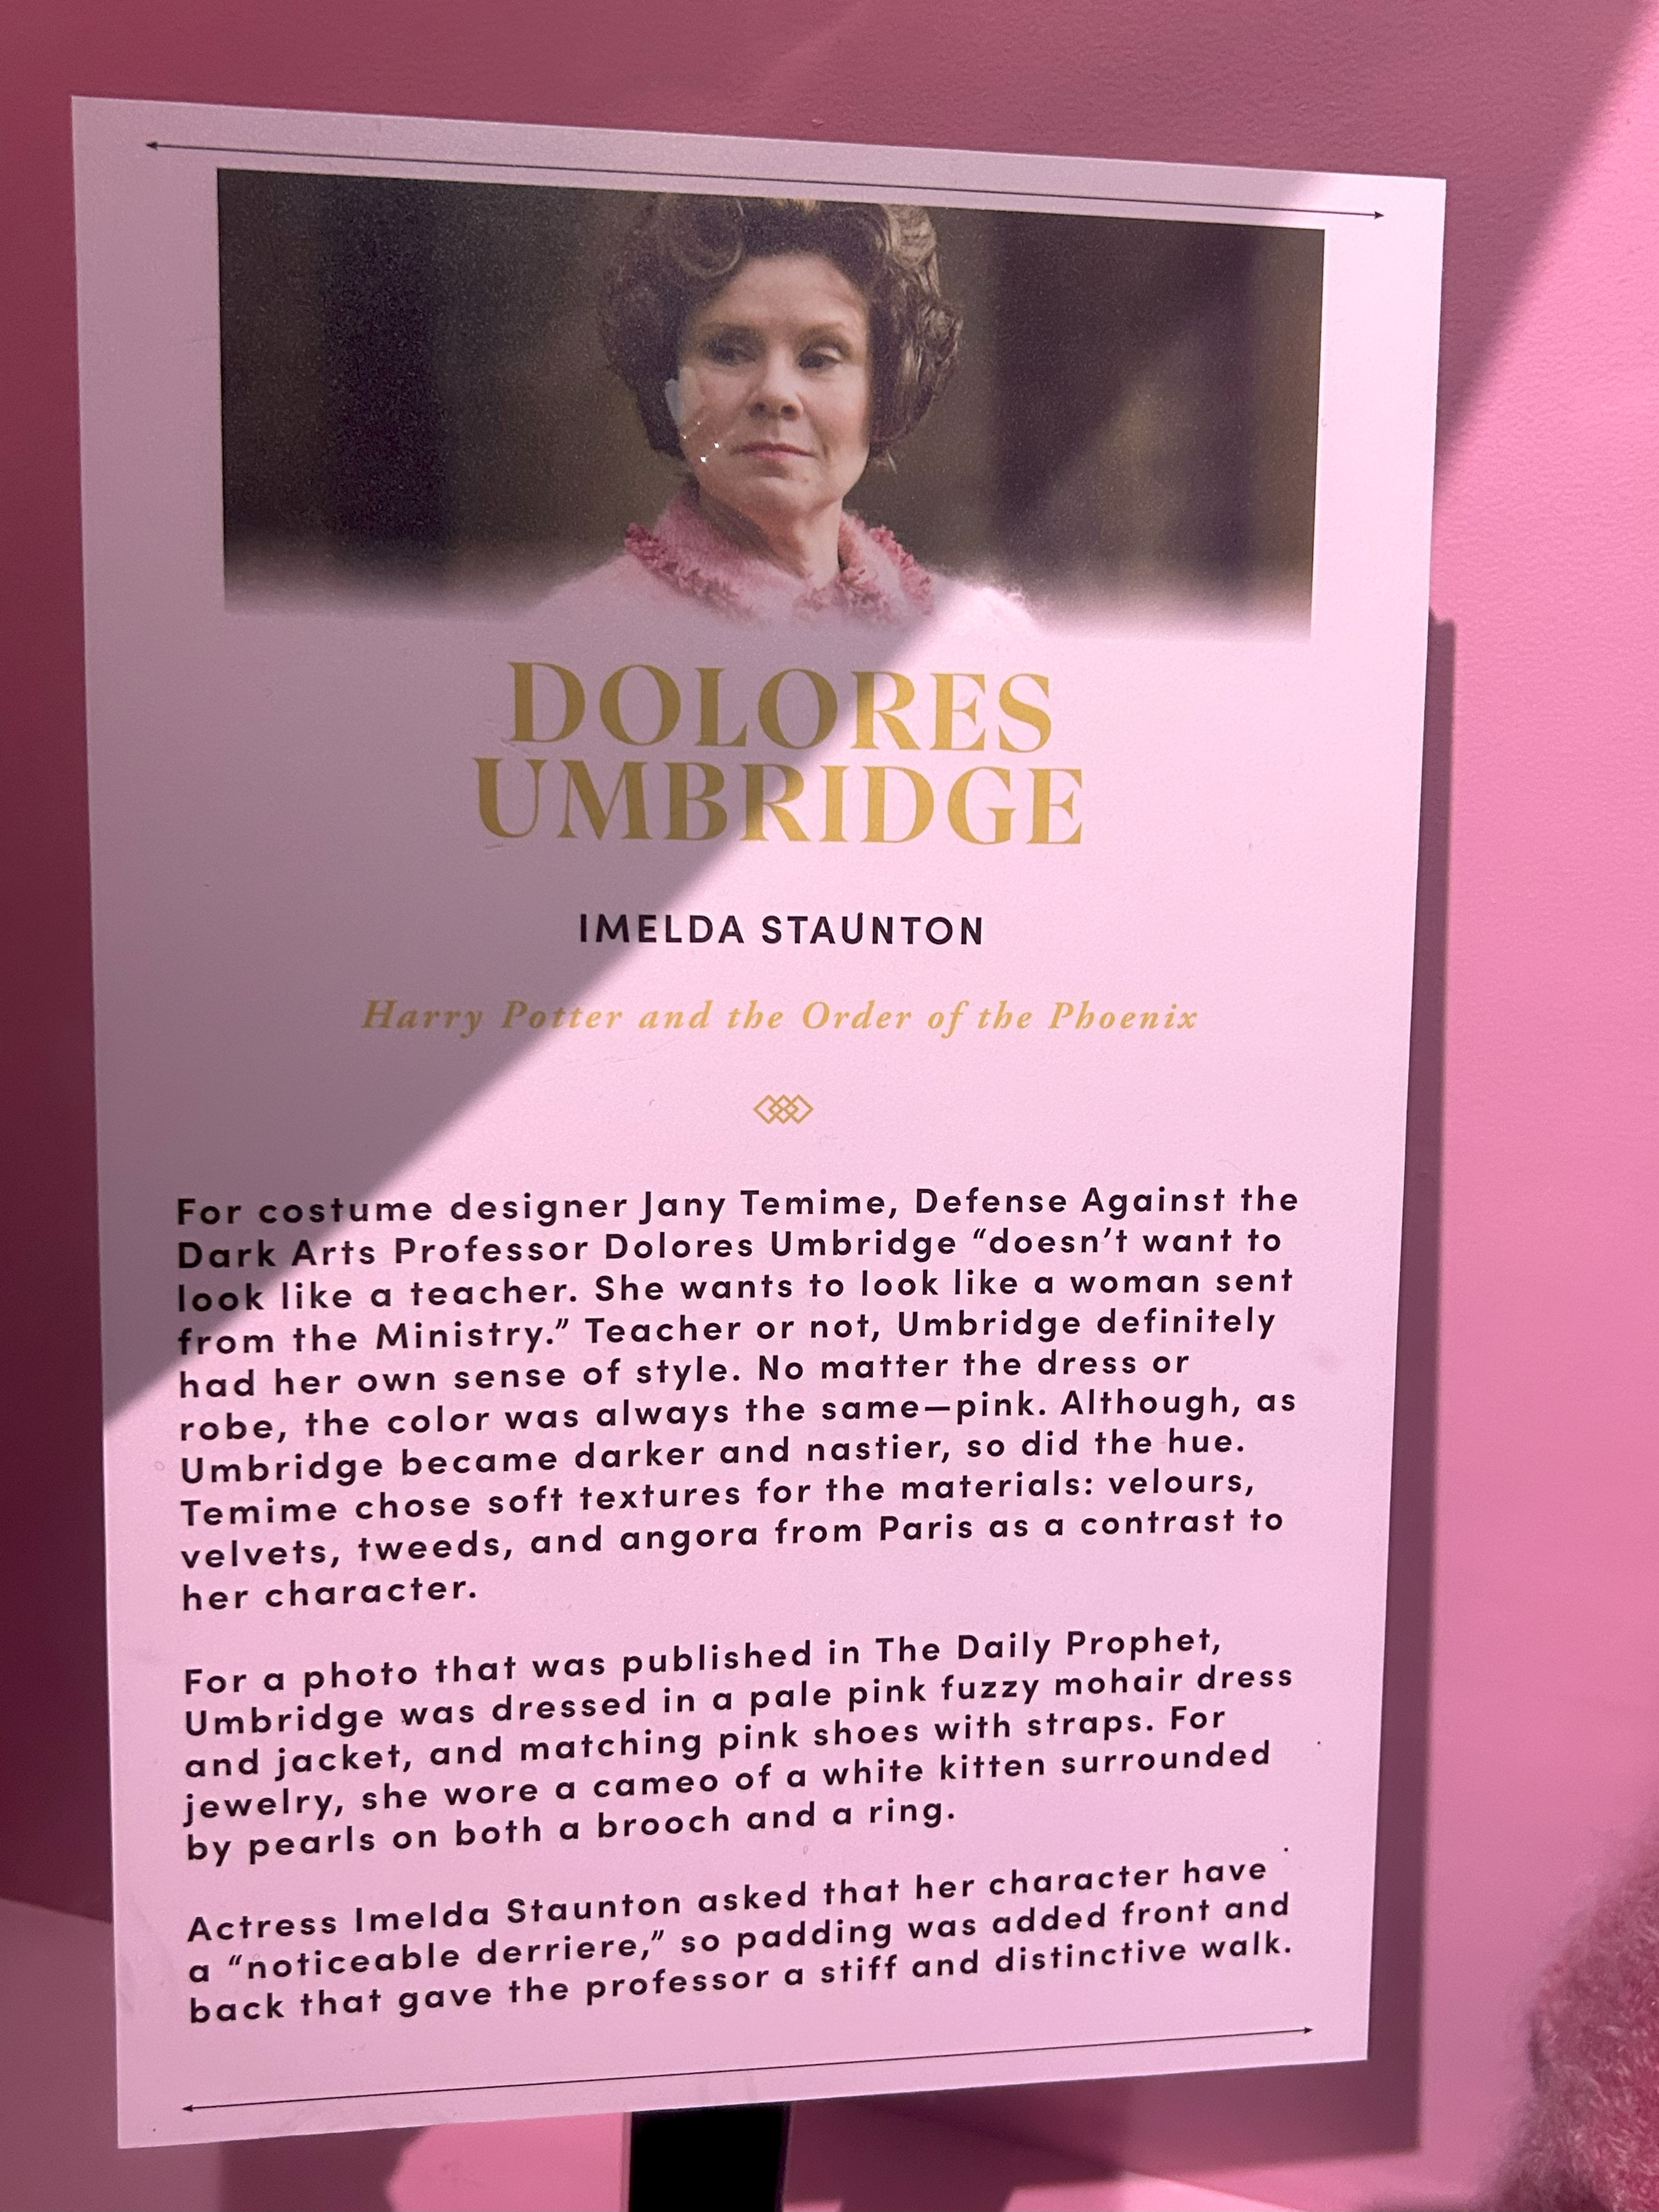 DOLORES
UMBRIDGE
IMELDA STAUNTON
Harry Potter and the Order of the Phoenix
For costume designer Jany Temime, Defense Against the
Dark Arts Professor Dolores Umbridge “doesn’t want to
look like a teacher. She wants to look like a woman sent
from the Ministry.” Teacher or not, Umbridge definitely
had her own sense of style. No matter the dress or
robe, the color was always the same—pink. Although, as
Umbridge became darker and nastier, so did the hue.
Temime chose soft textures for the materials: velours,
velvets, tweeds, and angora from Paris as a contrast to
her character.
For a photo that was published in The Daily Prophet,
Umbridge was dressed in a pale pink fuzzy mohair dress
and jacket, and matching pink shoes with straps. For
jewelry, she wore a cameo of a white kitten surrounded
by pearls on both a brooch and a ring.
Actress Imelda Staunton asked that her character have
a “noticeable derriere,” so padding was added front and
back that gave the professor a stiff and distinctive walk.